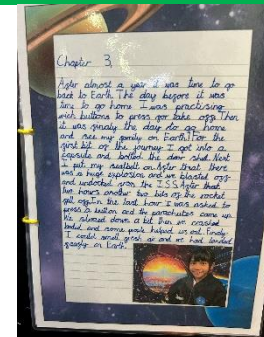 Chapter 3
After almost a year it was time to go
back to Earth. The day before it was
time to go home I was practising
wich buttons to press for take off. Then
it was finaly the day to go home
and see my family on Earth! For the
first bit of the journey I got into a
capsule and bolted the door shut. Next
I put my seatbelt on. After that there
was a huge explosion and we blasted off
and undocked from the I.S.S. After that
two hours another two bits of the rocket
fell off. In the last hour I was asked to
press a button and the parachutes came up.
We slowed down a bit then we
and some people helped us out. Finaly
I could smell fresh air and we had landed
safely on Earth.